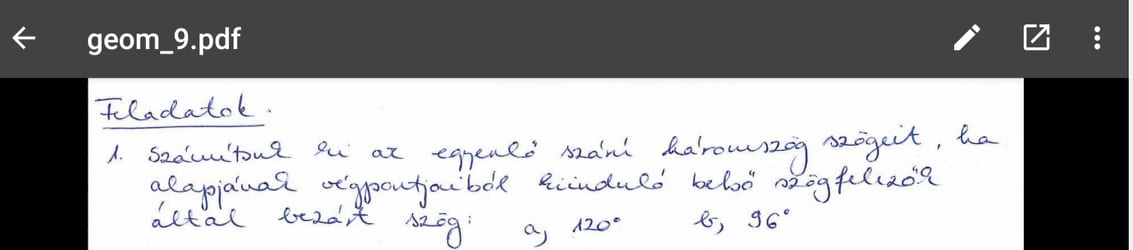 geom_9.pdf
Feladatok.
1. Számítsuk ki az egyenlő szárú háromszög szögeit, ha
alapjának végpontjaiból kiinduló belső szögfelezők
által bezárt szög: a, 120° b, 96°